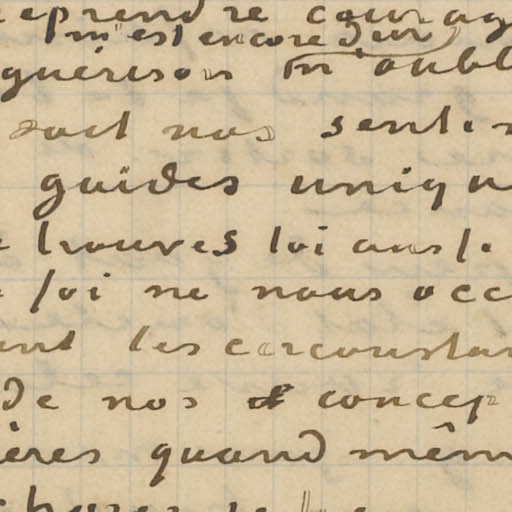 reprendre courag
m'est encore dur
guérison m oubl
soit nos senti
guides uniqu
trouves toi aussi
toi ne nous occ
ent les circonstan
de nos concep
ières quand mêm